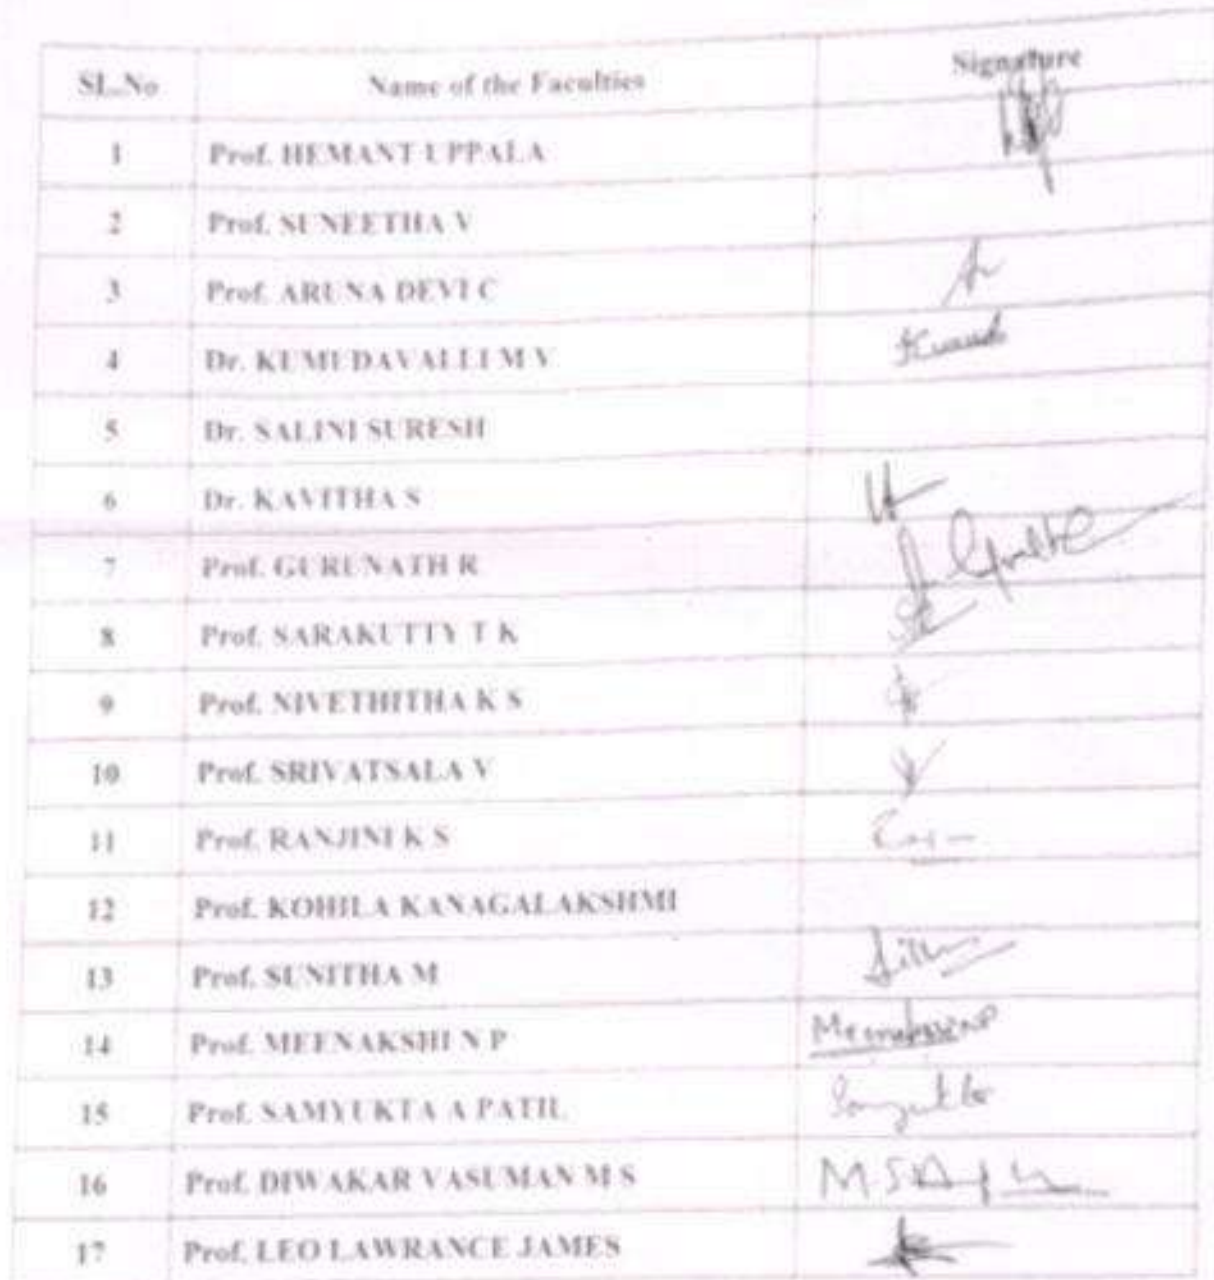 SL.No Name of the Faculties Signature
1 Prof. HEMANT UPPALA
2 Prof. SUNEETHA V
3 Prof. ARUNA DEVI C
4 Dr. KUMUDAVALLI M V
5 Dr. SALINI SURESH
6 Dr. KAVITHA S
7 Prof. GURUNATH R
8 Prof. SARAKUTTY T K
9 Prof. NIVETHITHA K S
10 Prof. SRIVATSALA V
11 Prof. RANJINI K S
12 Prof. KOHILA KANAGALAKSHMI
13 Prof. SUNITHA M
14 Prof. MEENAKSHI N P
15 Prof. SAMYUKTA A PATIL
16 Prof. DIWAKAR VASUMAN M S
17 Prof. LEO LAWRANCE JAMES